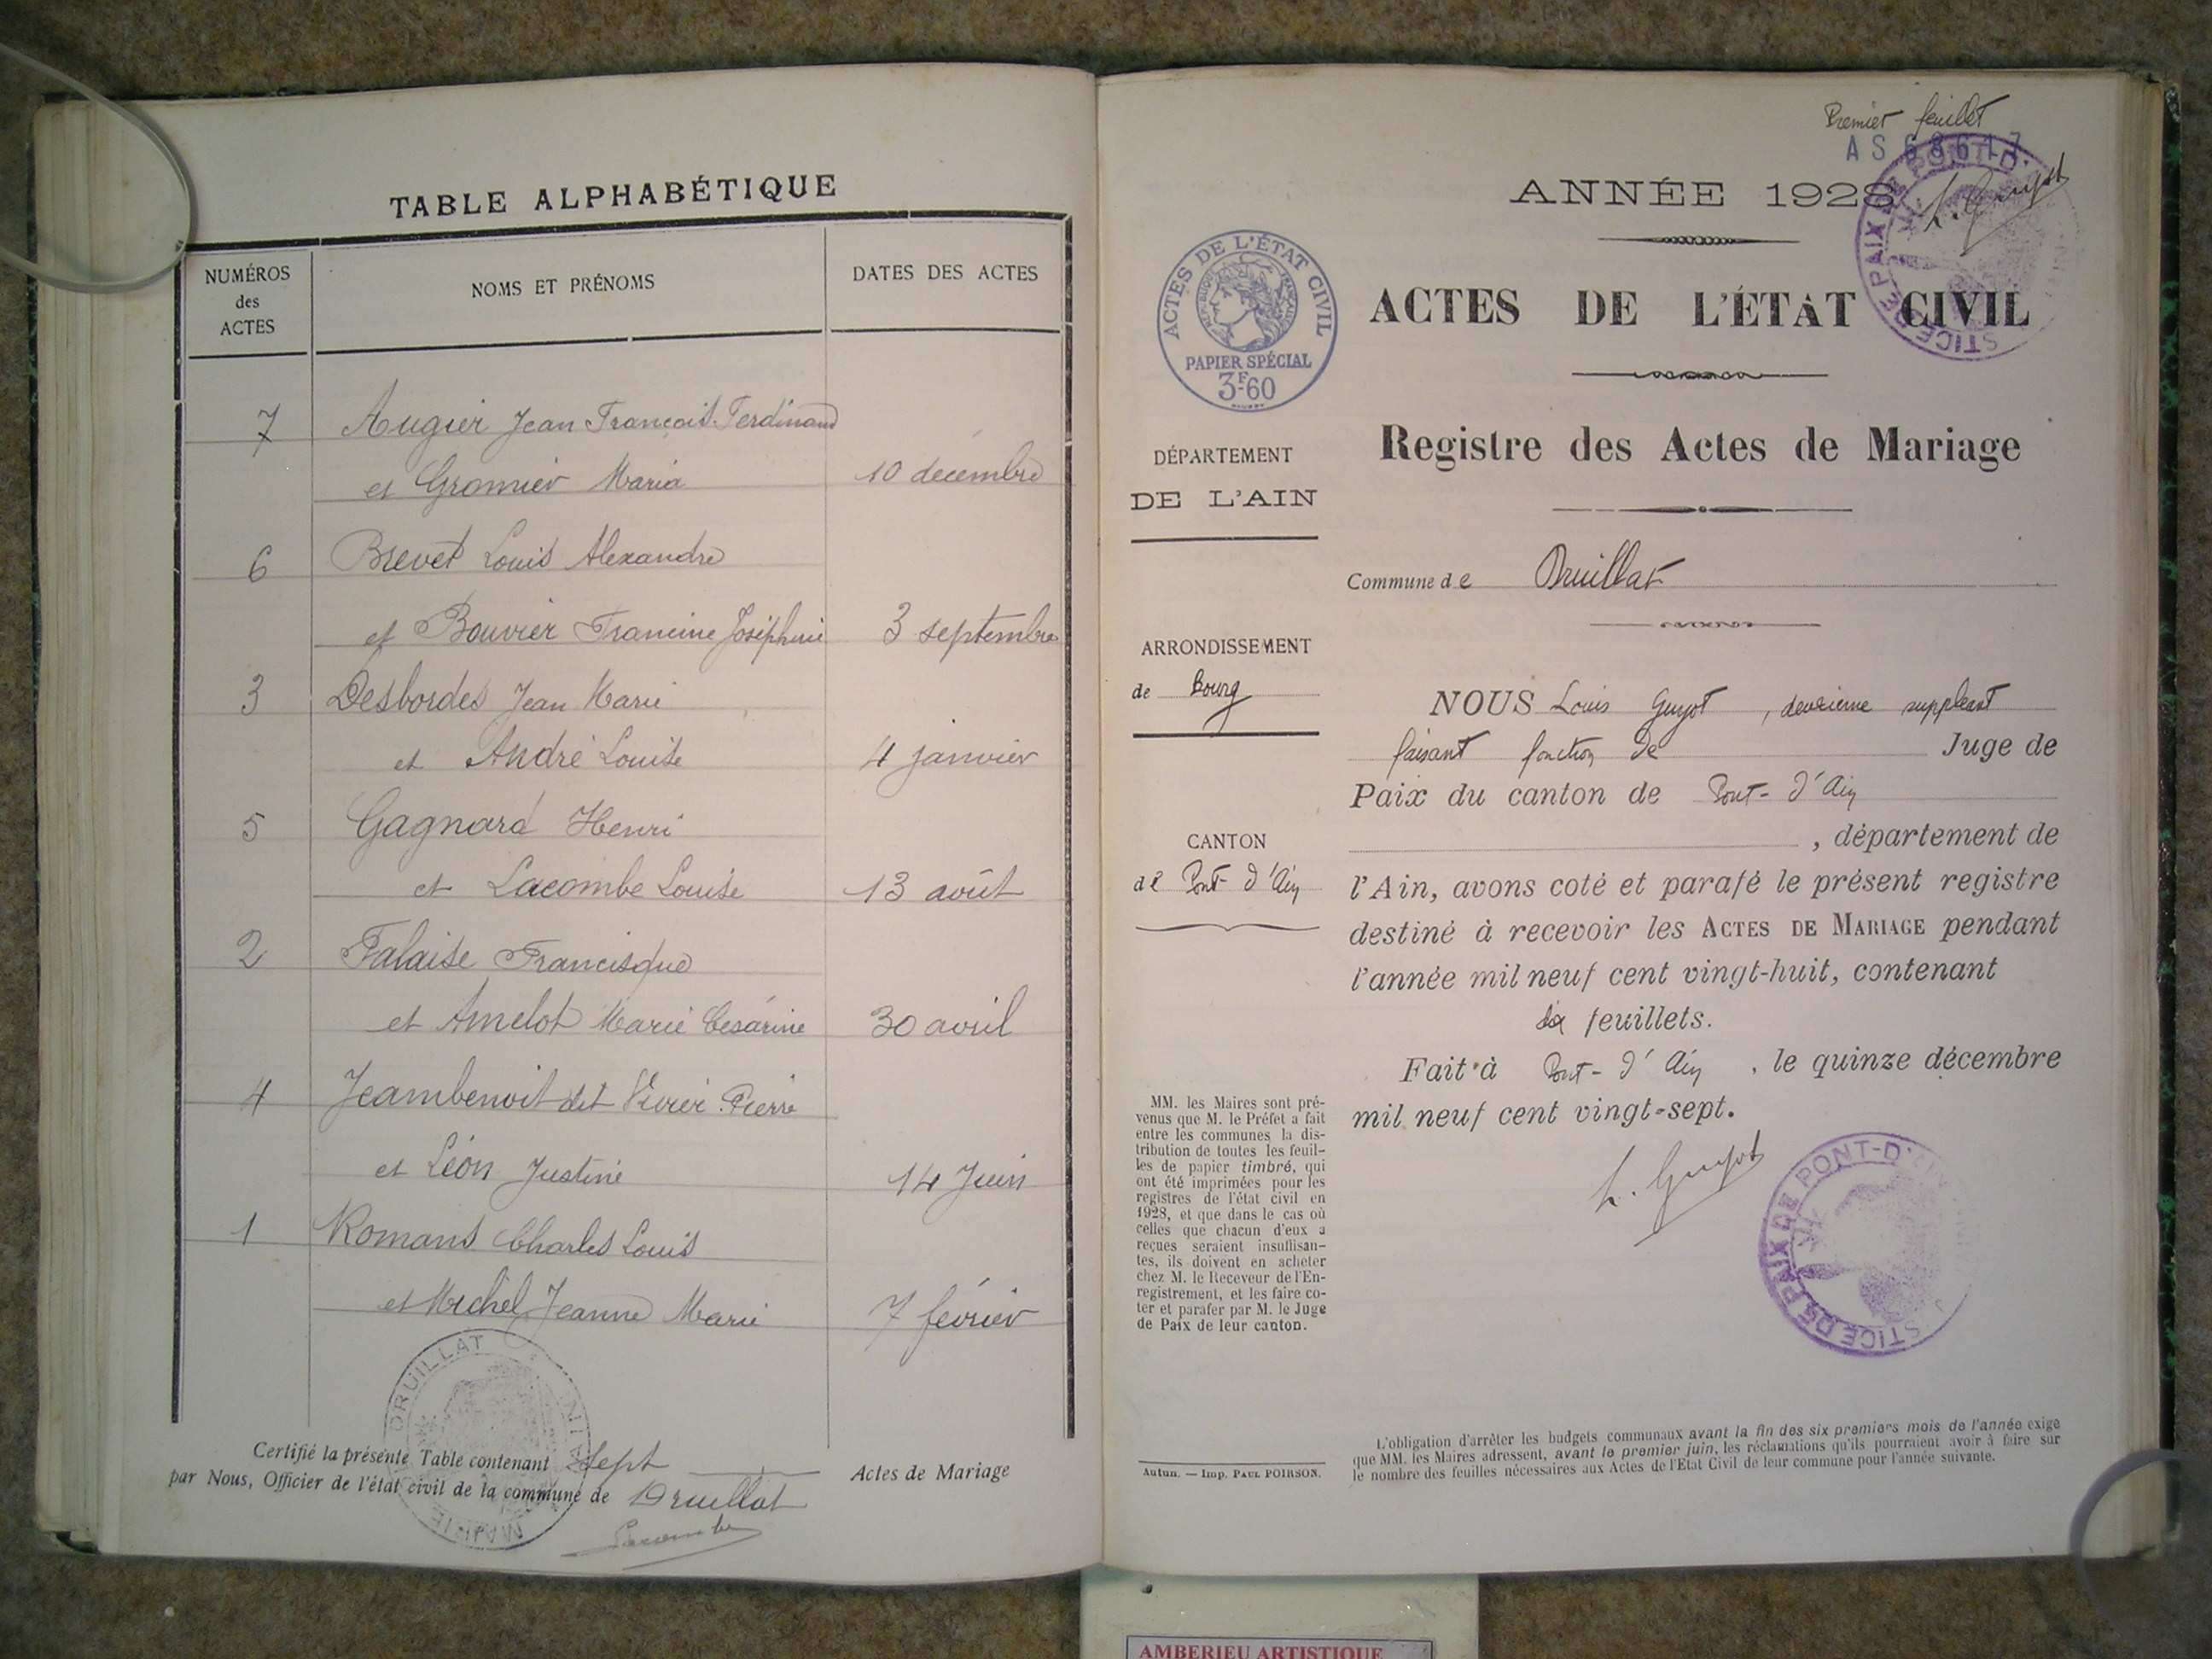 TABLE ALPHABÉTIQUE
NUMÉROS des ACTES
NOMS ET PRÉNOMS
DATES DES ACTES
7 Augier Jean François Ferdinand
et Gromier Maria 10 décembre
6 Brevet Louis Alexandre
et Bouvier Francine Joséphine 3 septembre
3 Desbordes Jean Marie
et André Louise 4 janvier
5 Gagnard Henri
et Lacombe Louise 13 août
2 Falaise Francisque
et Amelot Marie Césarine 30 avril
4 Jeambenoit dit Vivier Pierre
et Léon Justine 14 Juin
1 Romans Charles Louis
et Michel Jeanne Marie 7 février
DRUILLAT
MAIRIE
AIN
Certifié la présente Table contenant Sept Actes de Mariage
par Nous, Officier de l'état civil de la commune de Druillat
Lacombe
Premier feuillet
AS 68617
L. Guyot
ANNÉE 1928
ACTES DE L'ÉTAT CIVIL
RÉPUBLIQUE FRANÇAISE
PAPIER SPÉCIAL
3F60
ACTES DE L'ÉTAT CIVIL
Registre des Actes de Mariage
DÉPARTEMENT
DE L'AIN
Commune de Druillat
ARRONDISSEMENT
de Bourg
CANTON
de Pont-d'Ain
NOUS Louis Guyot, deuxième suppléant
faisant fonction de Juge de
Paix du canton de Pont-d'Ain
, département de
l'Ain, avons coté et parafé le présent registre
destiné à recevoir les ACTES DE MARIAGE pendant
l'année mil neuf cent vingt-huit, contenant
dix feuillets.
Fait à Pont-d'Ain, le quinze décembre
mil neuf cent vingt-sept.
L. Guyot
JUSTICE DE PAIX DE PONT-D'
MM. les Maires sont pré-
venus que M. le Préfet a fait
entre les communes la dis-
tribution de toutes les feuil-
les de papier timbré, qui
ont été imprimées pour les
registres de l'état civil en
1928, et que dans le cas où
celles que chacun d'eux a
reçues seraient insuffisan-
tes, ils doivent en acheter
chez M. le Receveur de l'En-
registrement, et les faire co-
ter et parafer par M. le Juge
de Paix de leur canton.
Autun. — Imp. PAUL POIRSON.
L'obligation d'arrêter les budgets communaux avant la fin des six premiers mois de l'année exige
que MM. les Maires adressent, avant le premier juin, les réclamations qu'ils pourraient avoir à faire sur
le nombre des feuilles nécessaires aux Actes de l'Etat Civil de leur commune pour l'année suivante.
AMBERIEU ARTISTIQUE